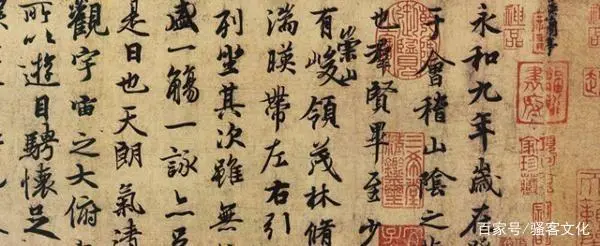 永和九年歲在
于會稽山陰之
也羣賢畢至少
有崇山峻領茂林脩
湍暎帶左右引
列坐其次雖無
盛一觴一詠亦足
是日也天朗氣清
觀宇宙之大俯
所以遊目騁懷足
百家号/骚客文化